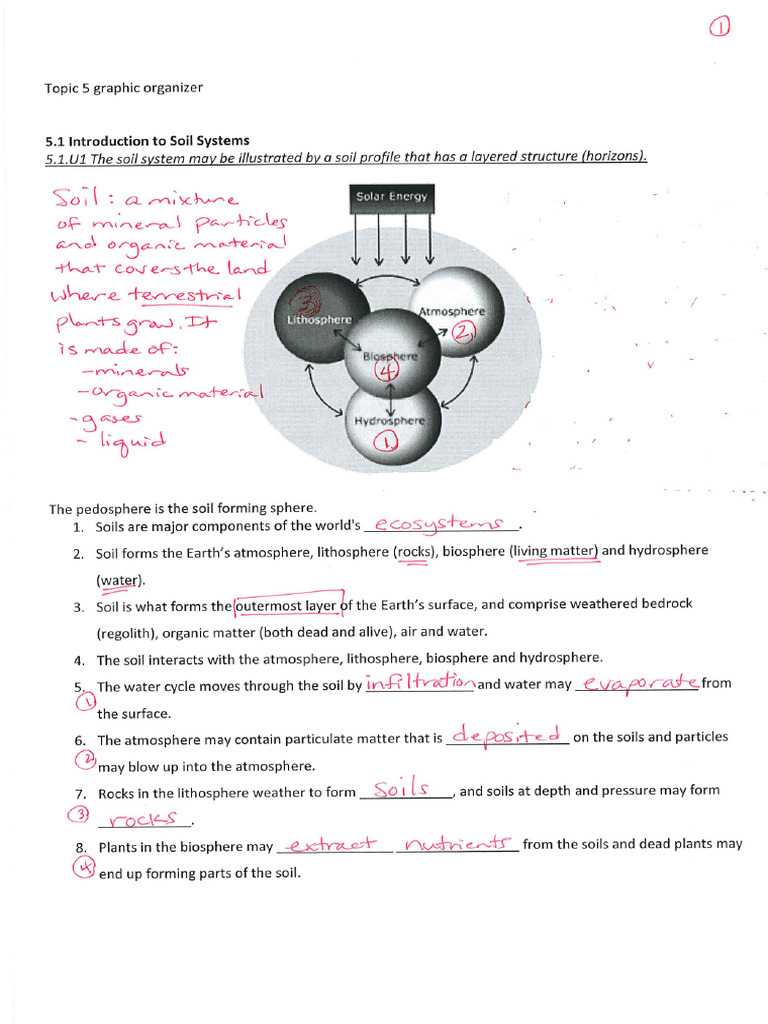 1
Topic 5 graphic organizer
5.1 Introduction to Soil Systems
5.1.U1 The soil system may be illustrated by a soil profile that has a layered structure (horizons).
Soil: a mixture
of mineral particles
and organic material
that covers the land
where terrestrial
plants grow. It
is made of:
- minerals
- organic material
- gases
- liquid
Solar Energy
3
Lithosphere
Atmosphere
2
Biosphere
4
Hydrosphere
1
The pedosphere is the soil forming sphere.
1. Soils are major components of the world's ecosystems.
2. Soil forms the Earth's atmosphere, lithosphere (rocks), biosphere (living matter) and hydrosphere
(water).
3. Soil is what forms the outermost layer of the Earth's surface, and comprise weathered bedrock
(regolith), organic matter (both dead and alive), air and water.
4. The soil interacts with the atmosphere, lithosphere, biosphere and hydrosphere.
5. The water cycle moves through the soil by infiltration and water may evaporate from
1
the surface.
6. The atmosphere may contain particulate matter that is deposited on the soils and particles
2
may blow up into the atmosphere.
7. Rocks in the lithosphere weather to form soils, and soils at depth and pressure may form
3
rocks.
8. Plants in the biosphere may extract nutrients from the soils and dead plants may
4
end up forming parts of the soil.